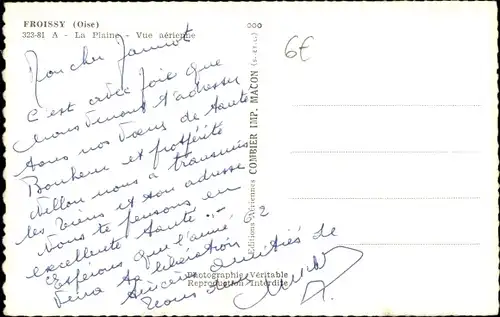 FROISSY (Oise)
323-81 A - La Plaine - Vue aérienne
6€
Mon cher Jeannot
C'est avec joie que
nous venons t'adresser
tous nos vœux de santé
Bonheur et prospérité
nous a transmis
les siens et son adresse
Nous te pensons en
excellente santé :-
Espérons que l'année 62
verra ta libération
Sincères amitiés de
nous deux
Editions Aériennes COMBIER IMP. MACON
Photographie Véritable
Reproduction Interdite